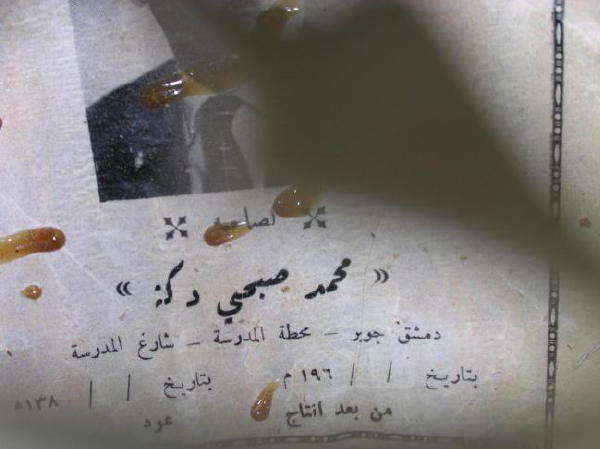 لصاحبه
« محمد صبحي دكة »
دمشق جوبر – محطة المدرسة – شارع المدرسة
بتاريخ / / ١٩٦ م بتاريخ / / ١٣٨ه
من بعد انتاج عود